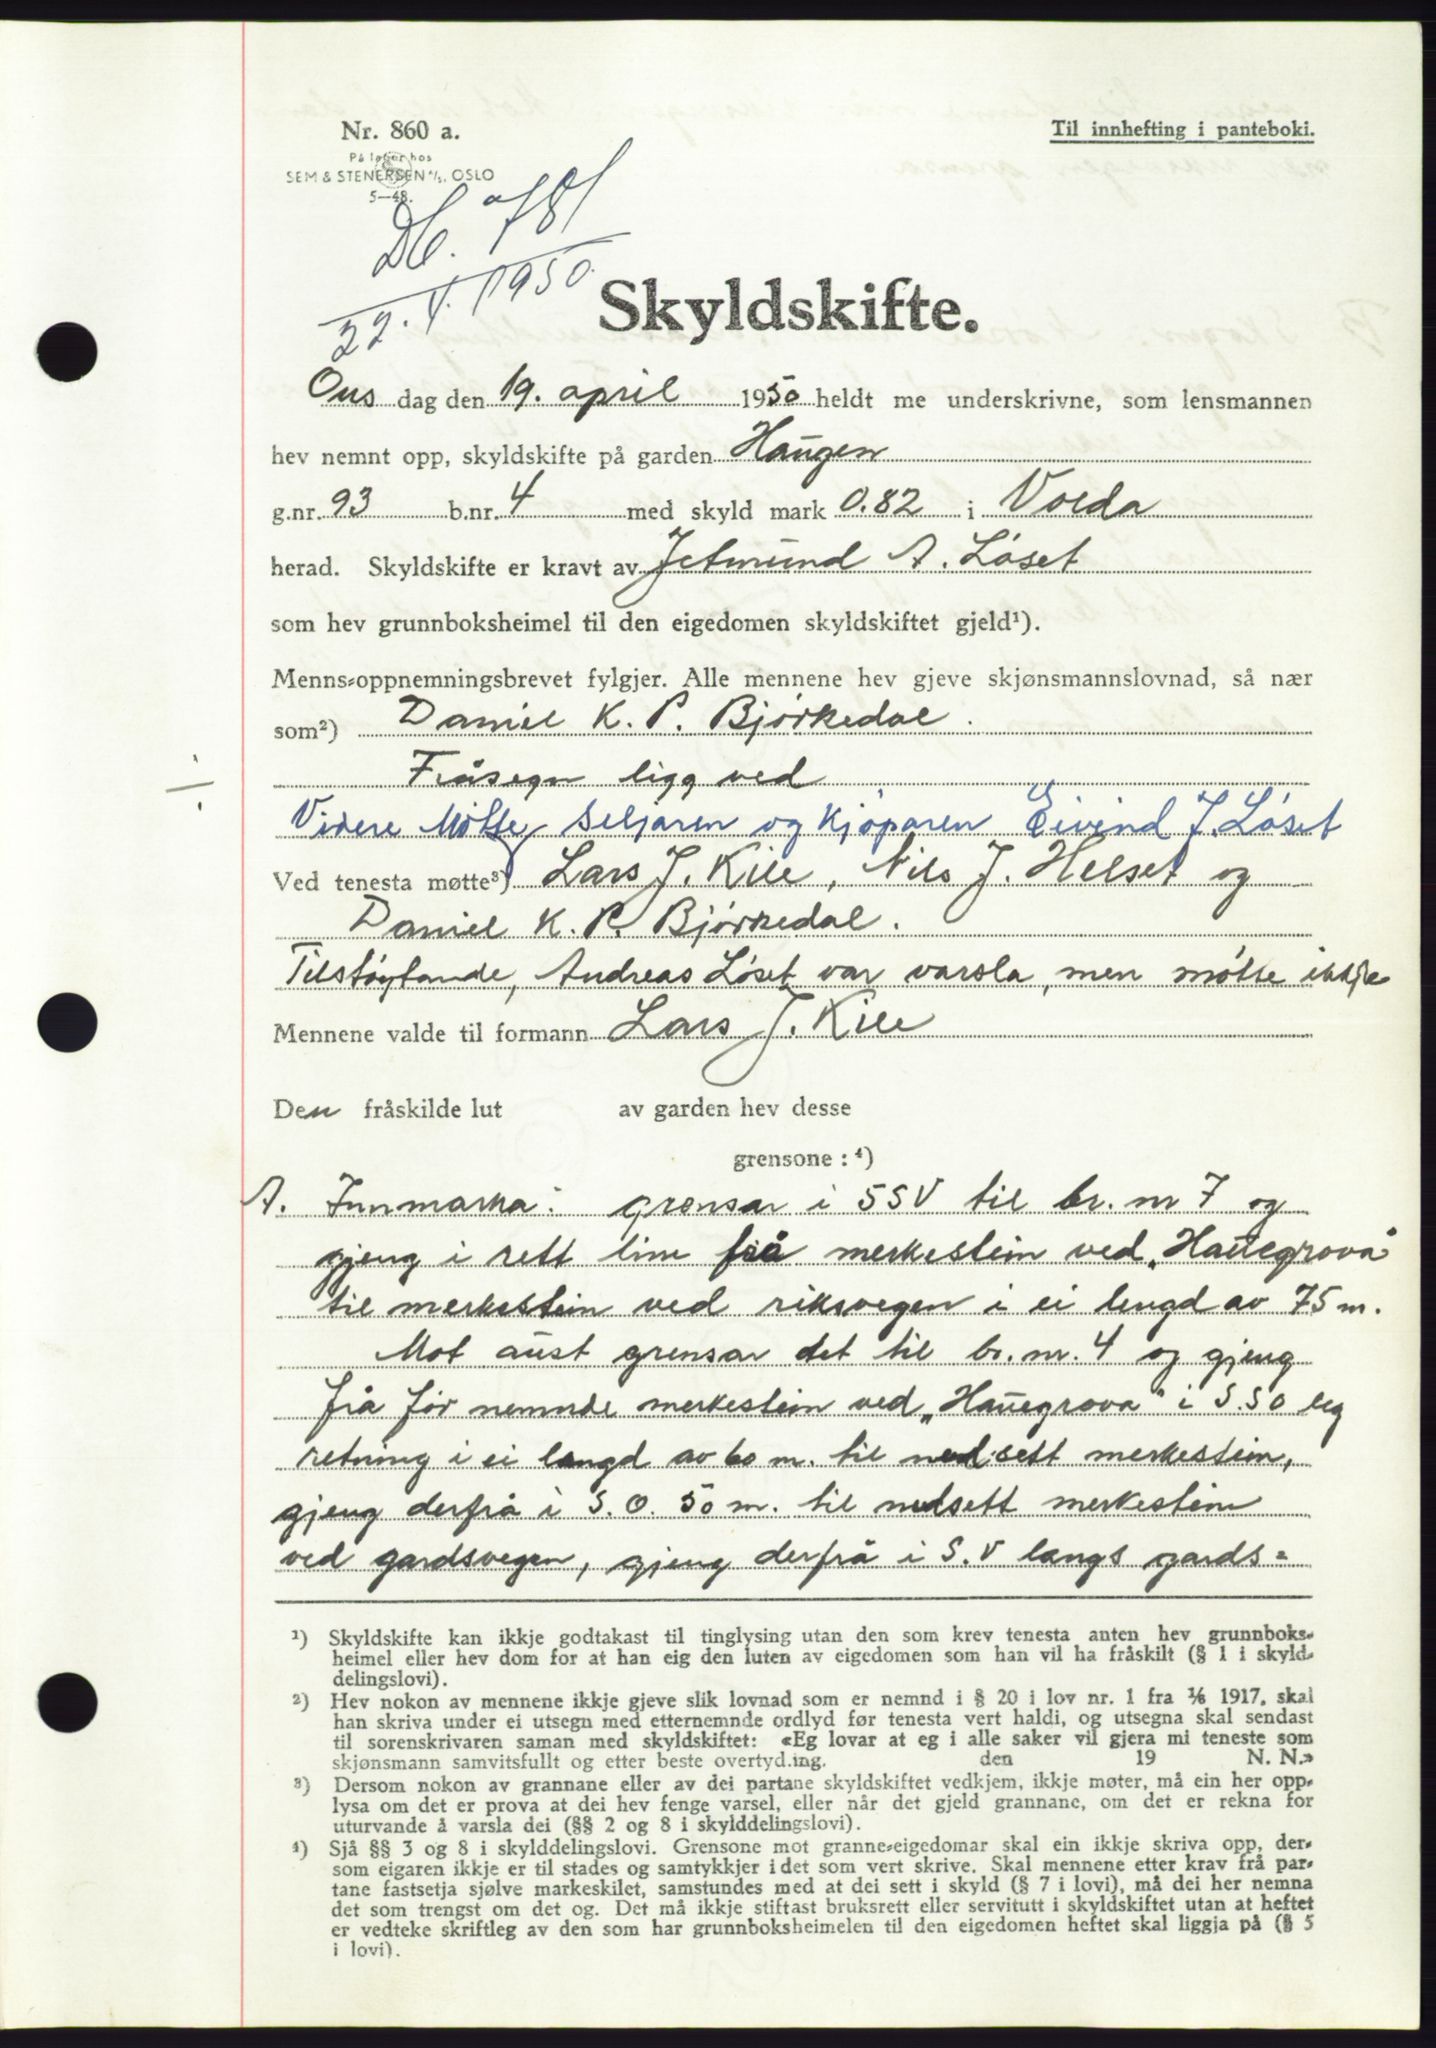 Nr. 860 a.
Til innhefting i panteboki.
På lager hos
SEM & STENERSEN A/S, OSLO
5—48.
Db. 781
22. 4. 1950.
Skyldskifte.
Ons dag den 19. april 1950 heldt me underskrivne, som lensmannen
hev nemnt opp, skyldskifte på garden Haugen
g.nr. 93 b.nr. 4 med skyld mark 0.82 i Volda
herad. Skyldskifte er kravt av Jetmund A. Løset
som hev grunnboksheimel til den eigedomen skyldskiftet gjeld¹).
Menns-oppnemningsbrevet fylgjer. Alle mennene hev gjeve skjønsmannslovnad, så nær
som²) Daniel K. P. Bjørkedal.
Fråsegn ligg ved
Videre møtte seljaren og kjøparen Eivind J. Løset
Ved tenesta møtte³) Lars J. Kile, Nils J. Helset og
Daniel K. P. Bjørkedal.
Tilstøytande, Andreas Løset var varsla, men møtte ikkje
Mennene valde til formann Lars J. Kile
Den fråskilde lut av garden hev desse
grensone : ⁴)
A. Innmarka: grensar i SSV til br. nr 7 og
gjeng i rett line frå merkestein ved „Haugegrova"
til merkestein ved riksvegen i ei lengd av 75 m.
Mot aust grensar det til br. nr. 4 og gjeng
frå før nemnde merkestein ved „Haugegrova" i S.SO leg
retning i ei lengd av 60 m. til nedsett merkestein,
gjeng derfrå i S.O. 50 m. til nedsett merkestein
ved gardsvegen, gjeng derfrå i S.V langs gards=
¹) Skyldskifte kan ikkje godtakast til tinglysing utan den som krev tenesta anten hev grunnboks-
heimel eller hev dom for at han eig den luten av eigedomen som han vil ha fråskilt (§ 1 i skyld-
delingslovi).
²) Hev nokon av mennene ikkje gjeve slik lovnad som er nemnd i § 20 i lov nr. 1 fra 1/6 1917, skal
han skriva under ei utsegn med etternemnde ordlyd før tenesta vert haldi, og utsegna skal sendast
til sorenskrivaren saman med skyldskiftet: «Eg lovar at eg i alle saker vil gjera mi teneste som
skjønsmann samvitsfullt og etter beste overtyding. den 19 N. N.»
³) Dersom nokon av grannane eller av dei partane skyldskiftet vedkjem, ikkje møter, må ein her opp-
lysa om det er prova at dei hev fenge varsel, eller når det gjeld grannane, om det er rekna for
uturvande å varsla dei (§§ 2 og 8 i skylddelingslovi).
⁴) Sjå §§ 3 og 8 i skylddelingslovi. Grensone mot granne-eigedomar skal ein ikkje skriva opp, der-
som eigaren ikkje er til stades og samtykkjer i det som vert skrive. Skal mennene etter krav frå par-
tane fastsetja sjølve markeskilet, samstundes med at dei sett i skyld (§ 7 i lovi), må dei her nemna
det som trengst om det og. Det må ikkje stiftast bruksrett eller servitutt i skyldskiftet utan at heftet
er vedteke skriftleg av den som har grunnboksheimelen til den eigedomen heftet skal liggja på (§ 5
i lovi).